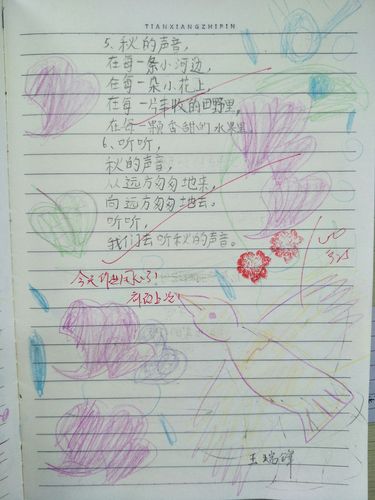 TIANXIANGZHIPIN
5、秋的声音,
在每一条小河边,
在每一朵小花上,
在每一片丰收的田野里,
在每一颗香甜的水果里。
6、听听,
秋的声音,
从远方匆匆地来,
向远方匆匆地去。
听听,
我们去听秋的声音。
今天